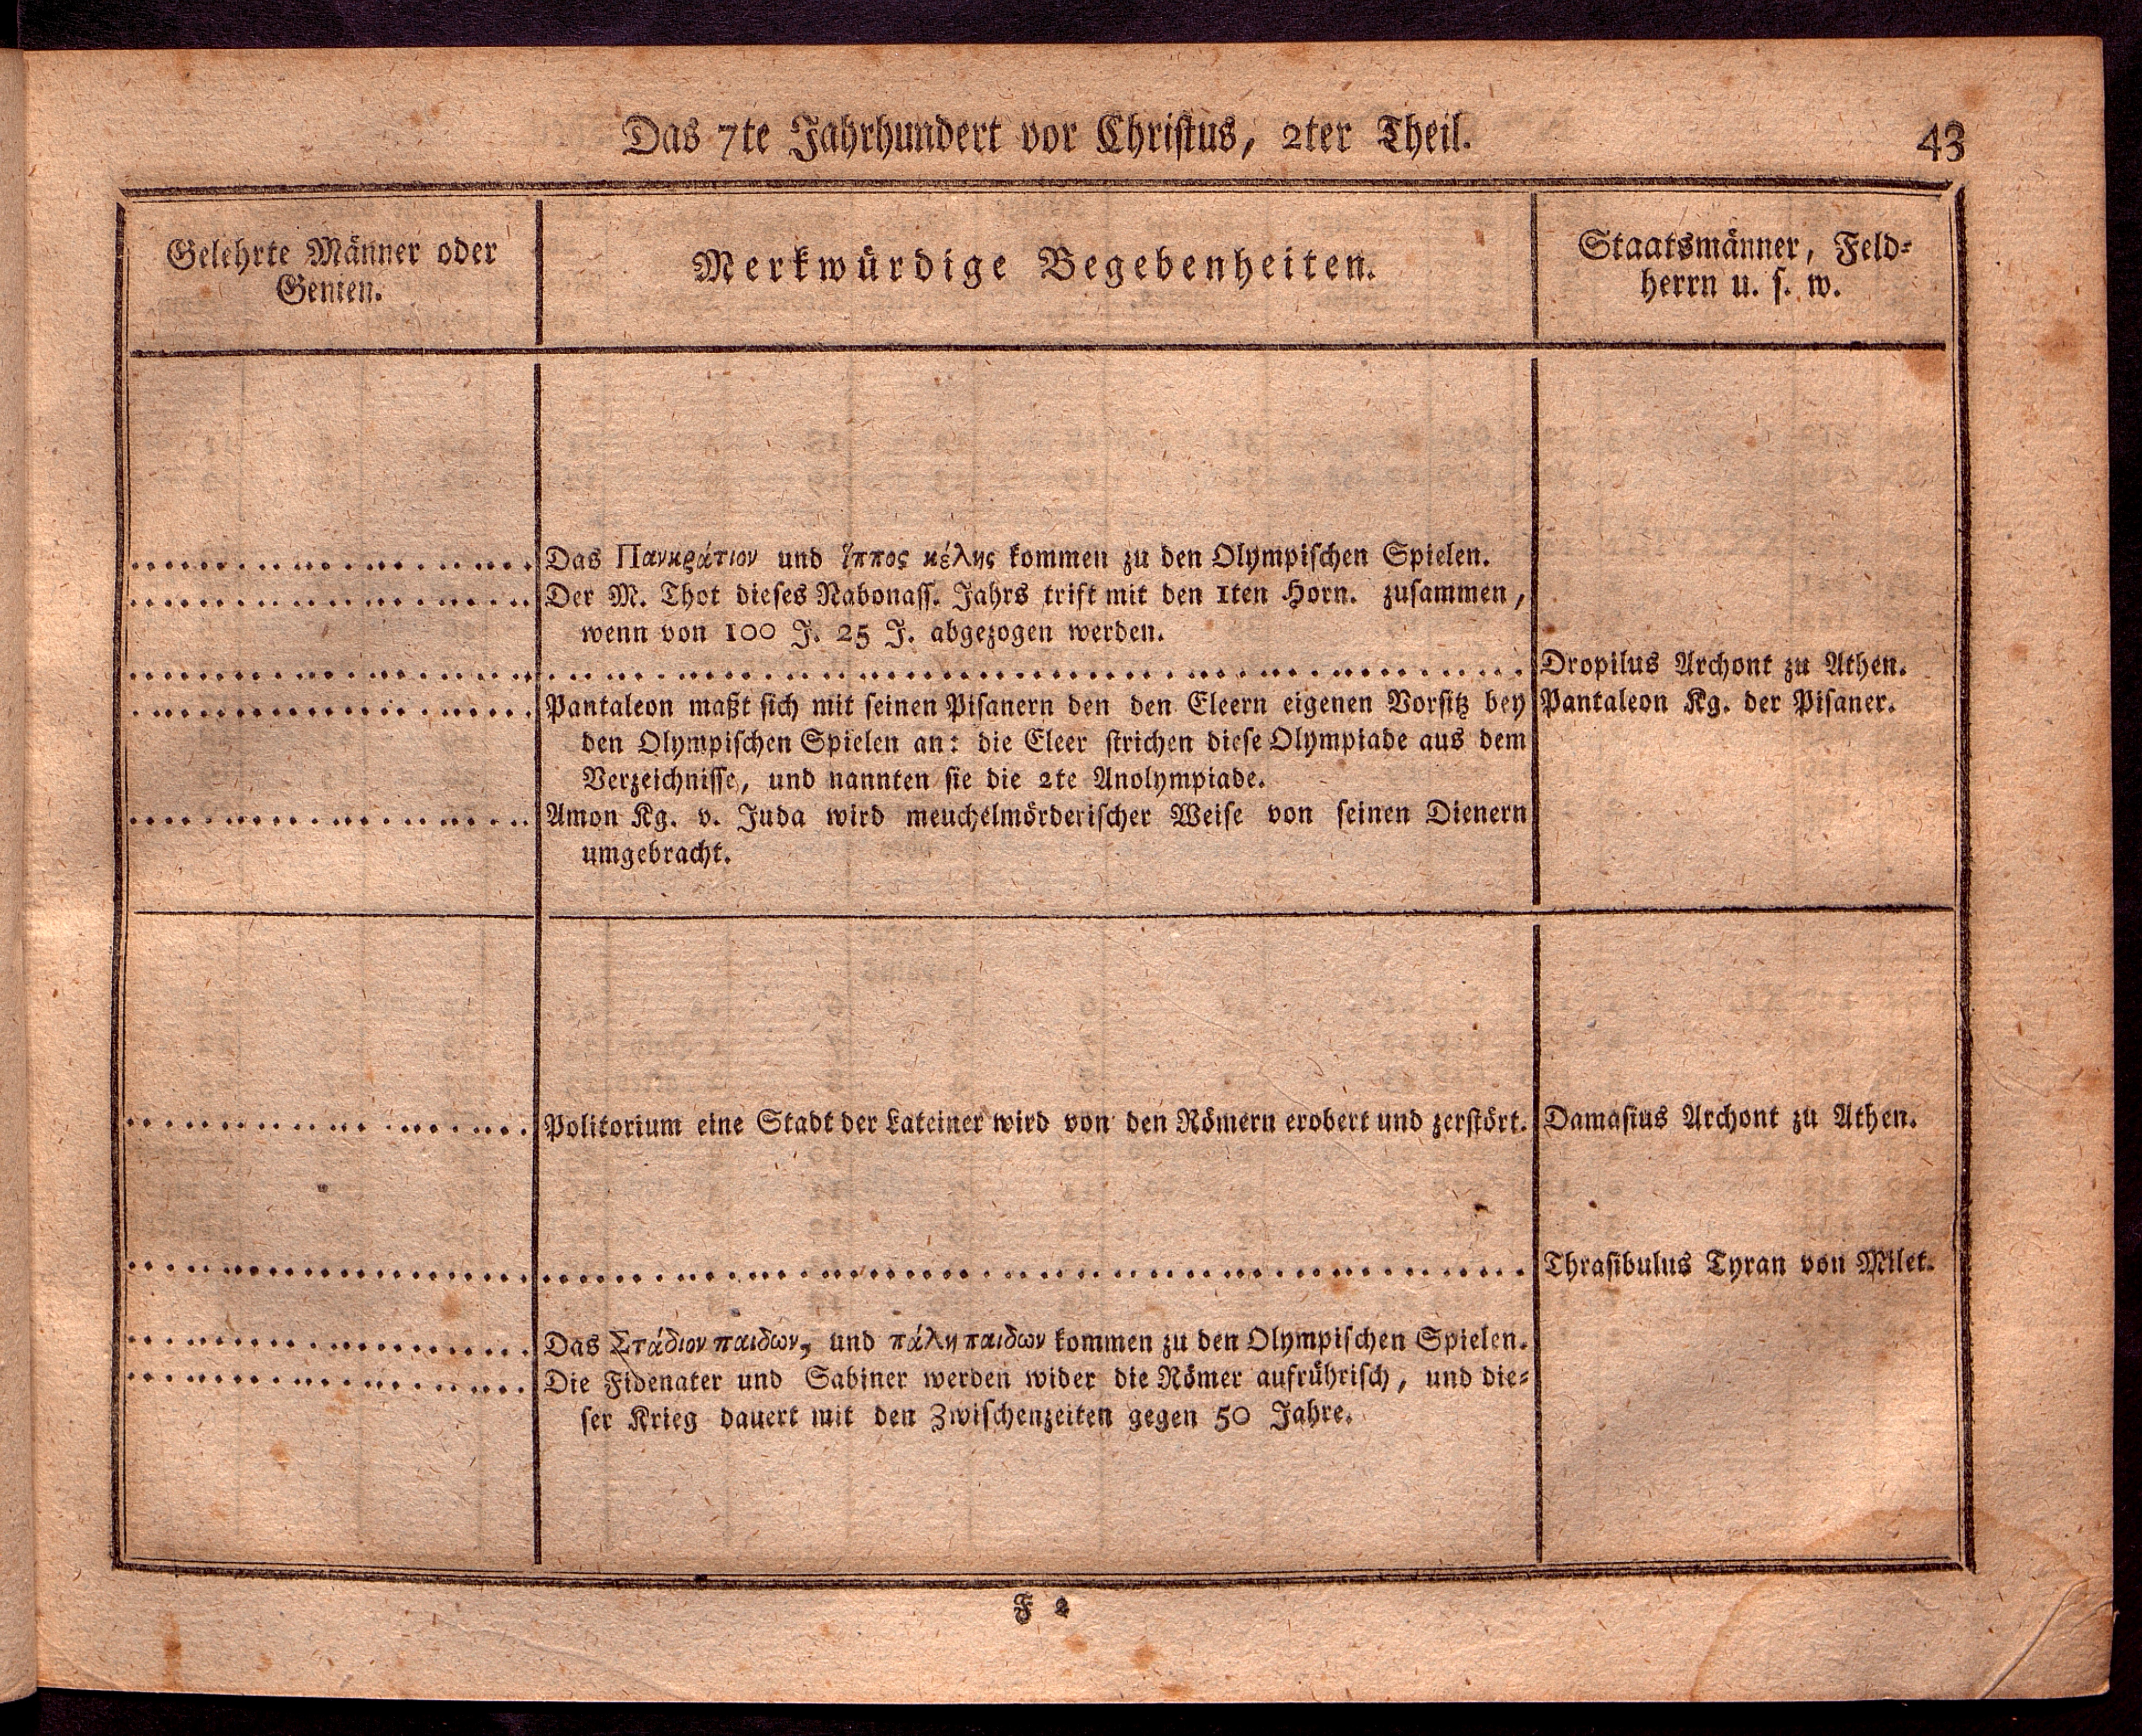 Das 7te Jahrhundert vor Christus, 2ter Theil.
43
Gelehrte Männer oder
Genien.
Merkwürdige Begebenheiten.
Staatsmänner, Feld-
herrn u. s. w.
Das Πανκράτιον und ἵππος κέλης kommen zu den Olympischen Spielen.
Der M. Thot dieses Nabonass. Jahrs trift mit den 1ten Horn. zusammen,
wenn von 100 J. 25 J. abgezogen werden.
Dropilus Archont zu Athen.
Pantaleon maßt sich mit seinen Pisanern den den Eleern eigenen Vorsitz bey
Pantaleon Kg. der Pisaner.
den Olympischen Spielen an: die Eleer strichen diese Olympiade aus dem
Verzeichnisse, und nannten sie die 2te Anolympiade.
Amon Kg. v. Juda wird meuchelmörderischer Weise von seinen Dienern
umgebracht.
Politorium eine Stadt der Lateiner wird von den Römern erobert und zerstört.
Damasius Archont zu Athen.
Thrasibulus Tyran von Milet.
Das Στάδιον παιδων, und πάλη παιδων kommen zu den Olympischen Spielen.
Die Fidenater und Sabiner werden wider die Römer aufrührisch, und die-
ser Krieg dauert mit den Zwischenzeiten gegen 50 Jahre.
F 2